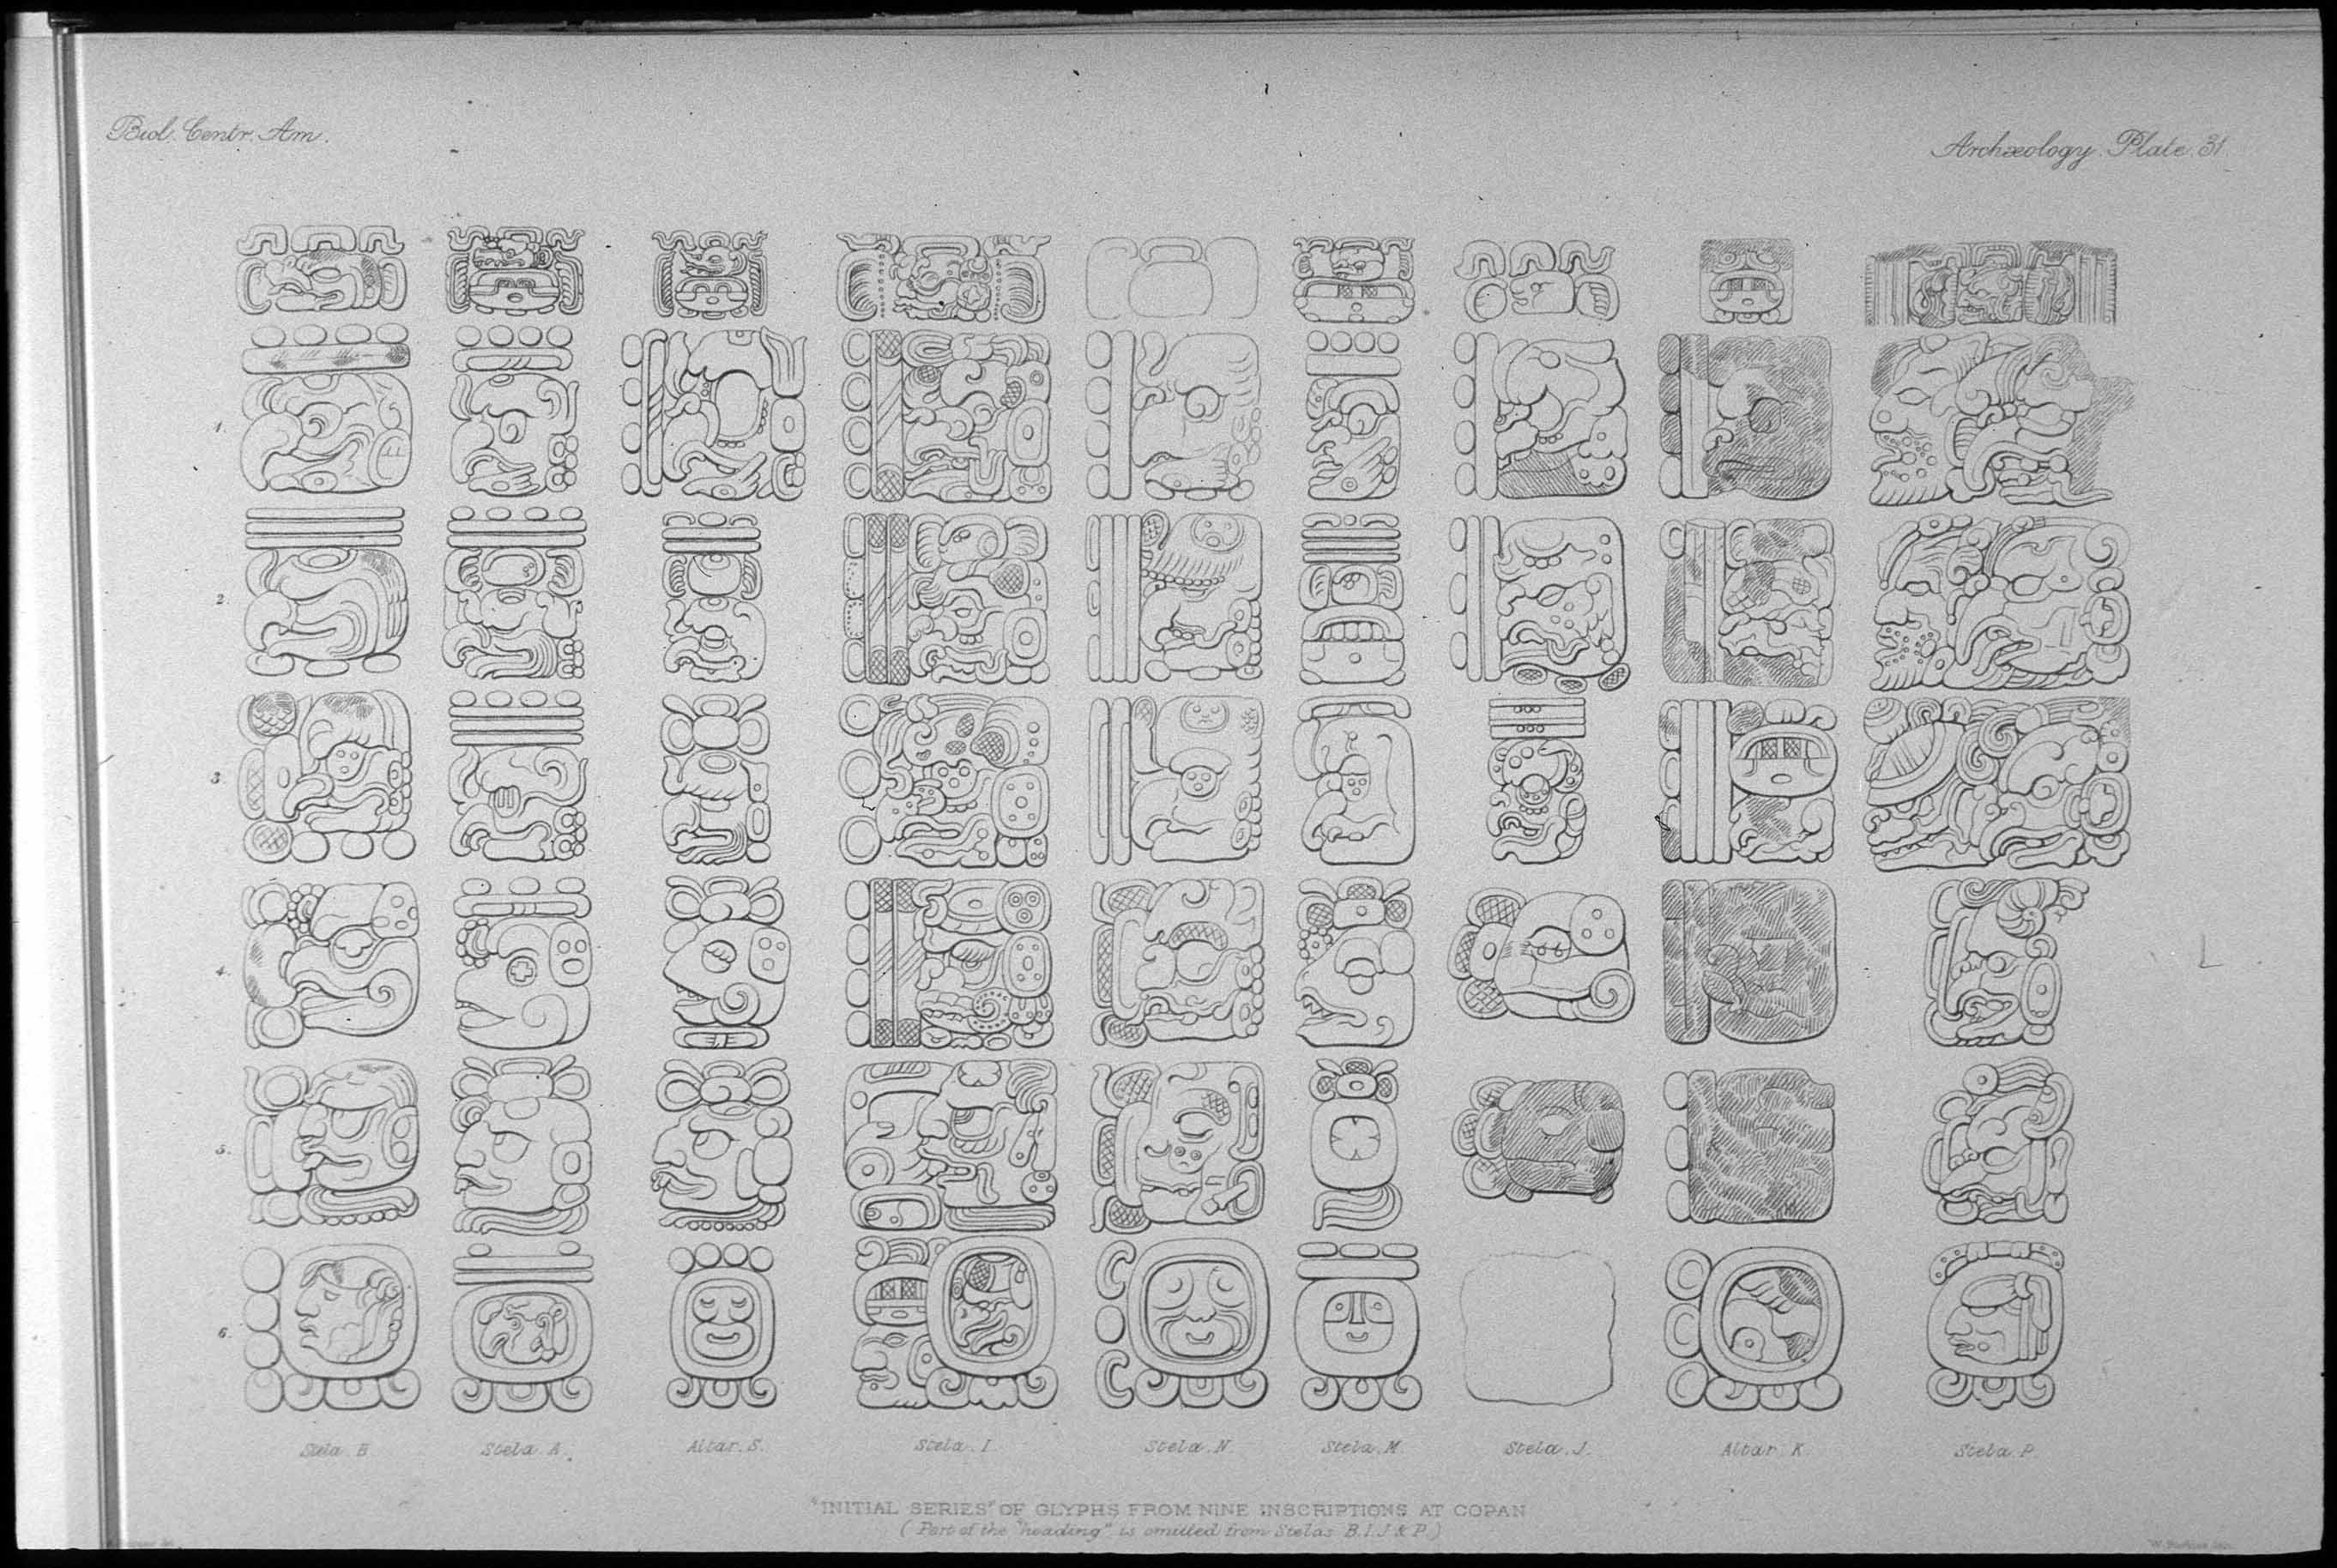 Biol. Centr. Am.
Archæology. Plate. 31.
1.
2.
3.
4.
5.
6.
Stela. B
Stela. A.
Altar. S.
Stela. I.
Stela. N.
Stela. M.
Stela. J.
Altar. K.
Stela. P.
"INITIAL SERIES" OF GLYPHS FROM NINE INSCRIPTIONS AT COPAN
(Part of the "heading" is omitted from Stelas B. I. J & P.)